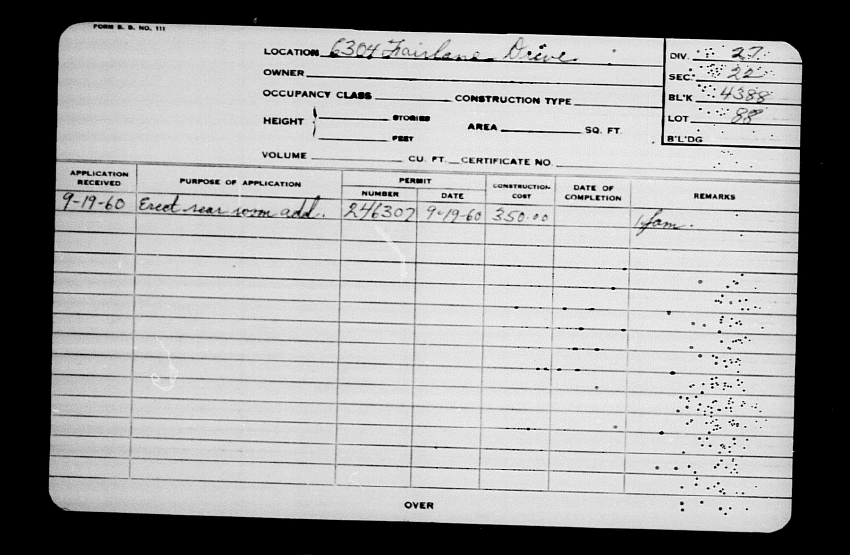 FORM B. B. NO. 111
LOCATION 6304 Fairlane Drive
OWNER
OCCUPANCY CLASS CONSTRUCTION TYPE
HEIGHT STORIES
FEET
AREA SQ. FT.
VOLUME CU. FT. CERTIFICATE NO.
DIV. 27
SEC. 22
BL'K 4388
LOT 88
B'L'DG
APPLICATION RECEIVED PURPOSE OF APPLICATION PERMIT NUMBER DATE CONSTRUCTION COST DATE OF COMPLETION REMARKS
9-19-60 Erect rear room add. 246307 9-19-60 350.00 1 fam.
OVER